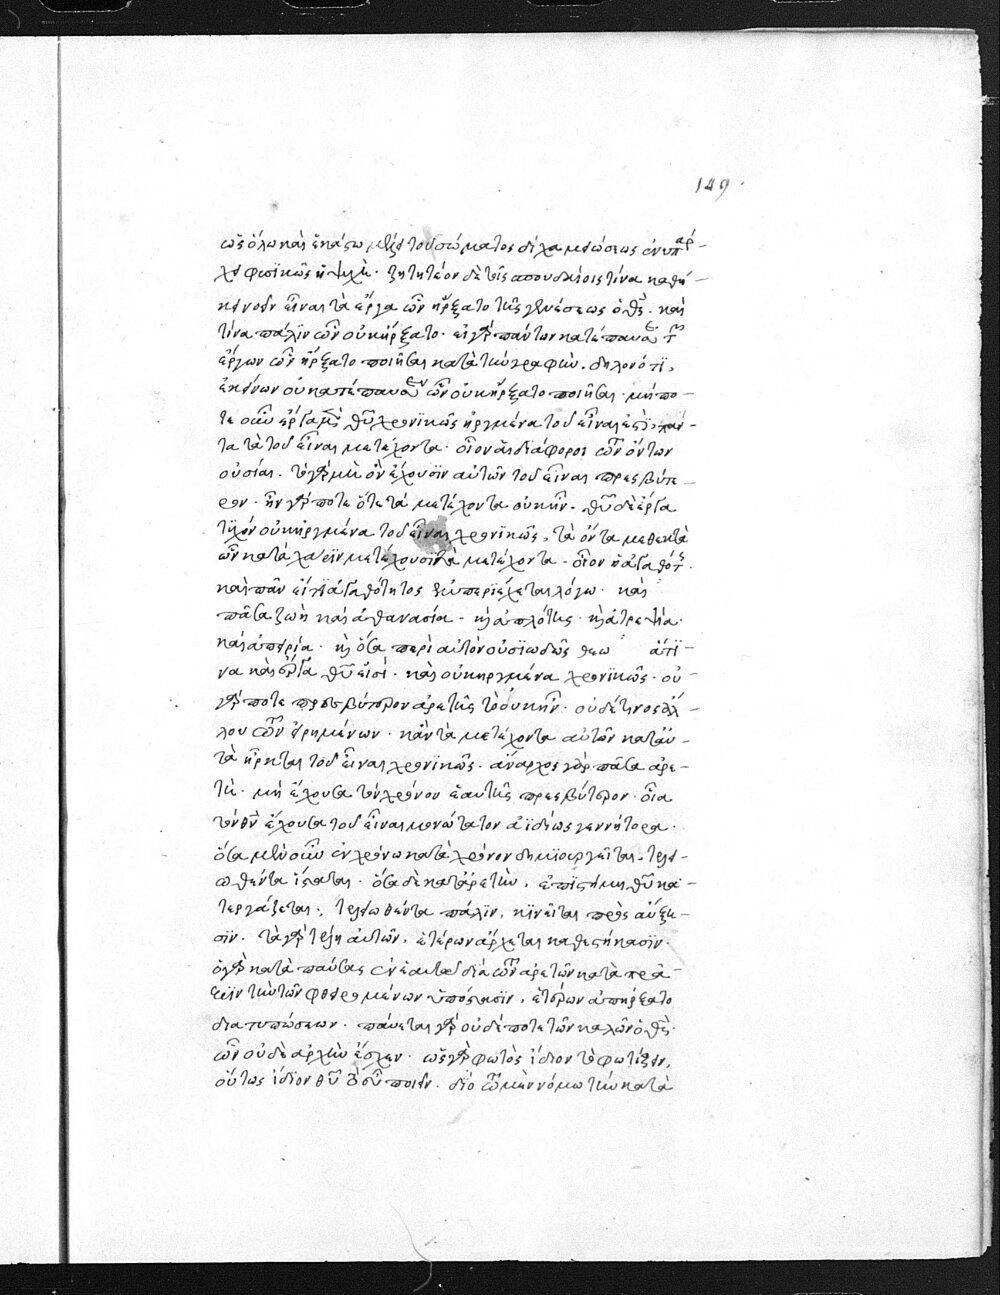 149.
ὡς ὅλω καὶ ἑκάστω μέρει τοῦ σώματος δίχα μειώσεως ἐνυπάρ-
χει φυσικῶς ἡ ψυχὴ. ζητητέον δὲ τοῖς σπουδαίοις τίνα καθή-
κειν εἶναι τὰ ἔργα ὧν ἤρξατο τῆς γενέσεως ὁ θς. καὶ
τίνα πάλϊν ὧν οὐκ ἤρξατο. εἰ γὰρ πάντων κατέπαυσε τῶν
ἔργων ὧν ἤρξατο ποιῆσαι κατὰ τὴν γραφὴν. δηλονότι,
ἐκείνων οὐ κατέπαυσεν ὧν οὐκ ἤρξατο ποιῆσαι. μήπο-
τε οὖν ἔργα μὲν θυ χρονϊκῶς ἠργμένα τοῦ εἶναι ἐστὶ, πάν-
τα τὰ τοῦ εἶναι μετέχοντα. οἷον αἱ διάφοροι τῶν ὄντων
οὐσίαι. τὸ γὰρ μὴ ὂν ἔχουσϊν αὐτῶν τοῦ εἶναι πρεσβύτε-
ρον. ἦν γάρ ποτε ὅτε τὰ μετέχοντα οὐκ ἦν. θυ δὲ ἔργα
τυχὸν οὐκ ἠργμένα τοῦ εἶναι χρονϊκῶς, τὰ ὄντα μεθεκτὰ
ὧν κατὰ χάρϊν μετέχουσϊ τὰ μετέχοντα. οἷον ἡ ἀγαθότης.
καὶ πᾶν εἴ τι ἀγαθότητος ἐμπεριέχεται λόγω. καὶ
πᾶσα ζωὴ καὶ ἀθανασία. καὶ ἁπλότης. καὶ ἀτρεψία.
καὶ ἀπειρία. καὶ ὅσα περὶ αὐτὸν οὐσϊωδῶς θεω ἅτϊ-
να καὶ ἔργα θυ εἰσί. καὶ οὐκ ἠργμένα χρονϊκῶς. οὐ
γάρ ποτε πρεσβύτερον ἀρετῆς τὸ οὐκ ἦν. οὐδέ τινος ἄλ-
λου τῶν εἰρημένων. κἂν τὰ μετέχοντα αὐτῶν κατ' αὐ-
τὰ ἦρκται τοῦ εἶναι χρονϊκῶς. ἄναρχος γὰρ πᾶσα ἀρε-
τὴ. μὴ ἔχουσα τὸν χρόνον ἑαυτῆς πρεσβύτερον. οἷα
τὸν θν ἔχουσα τοῦ εἶναι μονώτατον ἀϊδίως γεννήτορα.
ὅσα μὲν οὖν ἐν χρόνω κατὰ χρόνον δημϊουργεῖται, τελει-
ωθέντα ἵσταται. ὅσα δὲ κατ' ἀρετὴν, ἐπϊστήμη θυ κα-
τεργάζεται, τελειωθέντα πάλϊν, κϊνεῖται πρὸς αὔξη-
σϊν. τὰ γὰρ τέλη αὐτῶν, ἑτέρων ἀρχεται καθεστήκασϊν.
ὁ γὰρ καταπαύσας ἐν ἑαυτῶ διὰ τῶν ἀρετῶν κατὰ πρᾶ-
ξϊν τὴν τῶν φθειρομένων ὑπόστασϊν, ἑτέρων ἀπήρξατο
διατυπώσεων. παύεται γὰρ οὐδέποτε τῶν καλῶν ὁ θς.
ὧν οὐδὲ ἀρχὴν ἔσχεν. ὡς γὰρ φωτὸς ἴδιον τὸ φωτίζειν,
οὕτως ἴδιον θυ τὸ εὖ ποιεῖν. διὸ τῶ μὲν νόμω τὴν κατὰ